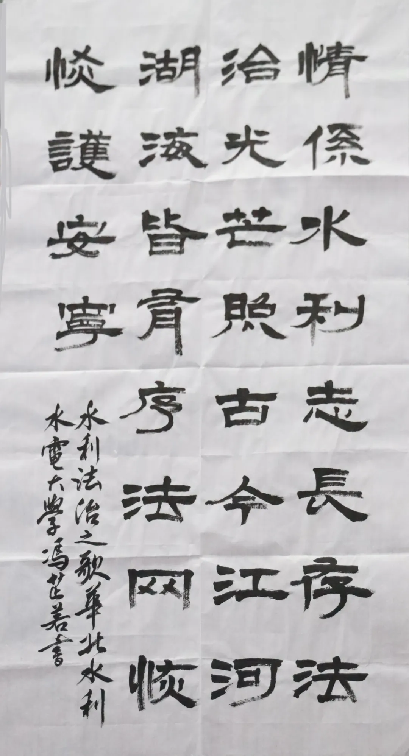 情係水利志長存法
治光芒照古今江河
湖海皆有序法网恢
恢護安寧
水利法治之歌華北水利
水電大學馮芷若書